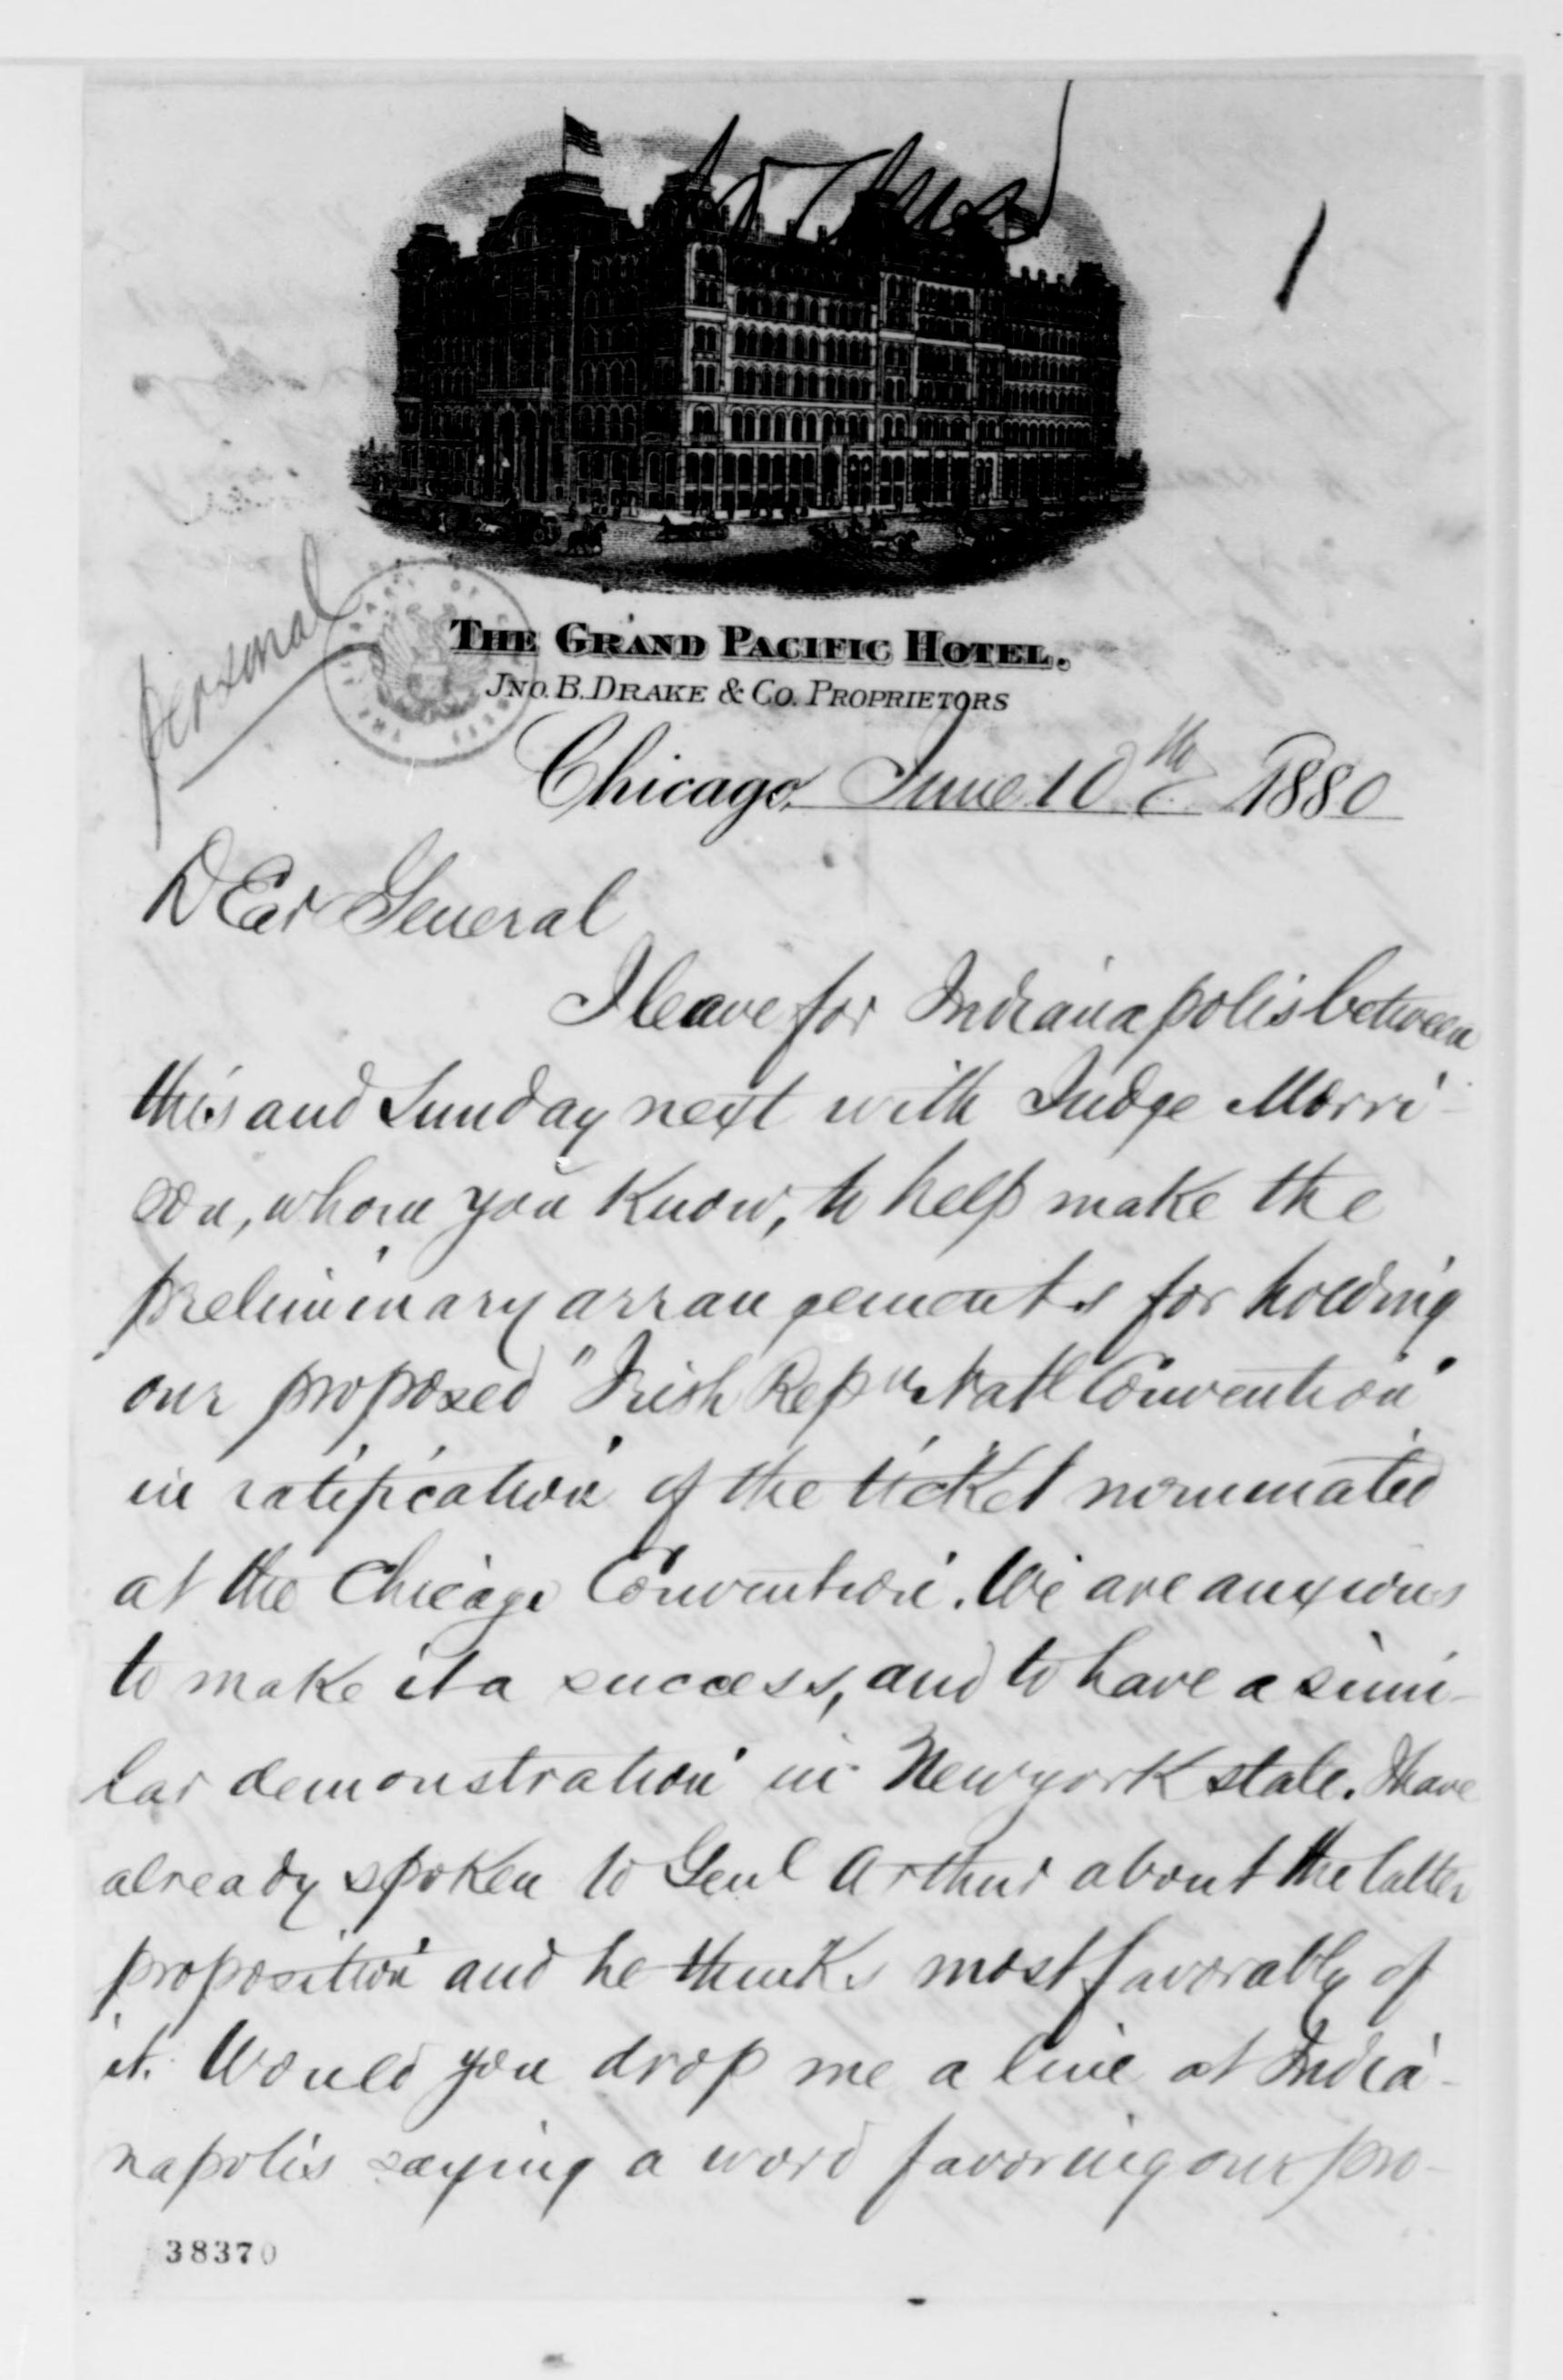 Personal
THE GRAND PACIFIC HOTEL.
JNO. B. DRAKE & CO. PROPRIETORS
Chicago, June 10th 1880
DEar General
I leave for Indianapolis between
this and Sunday next with Judge Morri-
son, whom you Know, to help make the
preliminary arrangements for holding
our proposed "Irish Repn Natl Convention"
in ratification of the ticket nominated
at the Chicago Convention. We are anxious
to make it a success, and to have a simi-
lar demonstration in New york state. I have
already spoken to Genl Arthur about the latter
proposition and he thinks most favorably of
it. Would you drop me a line at India-
napolis saying a word favoring our pro-
38370